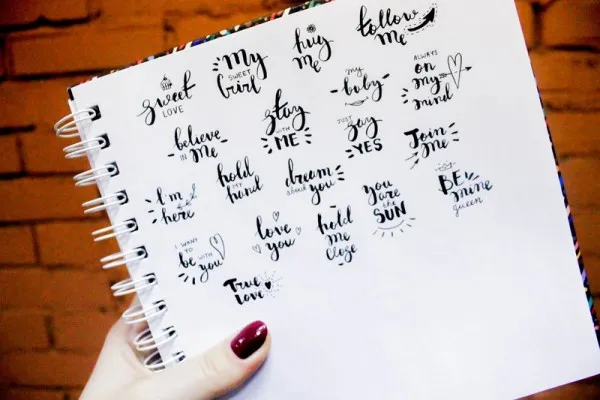 sweet
LOVE
My
SWEET
Girl
hug
me
follow
me
believe
IN me
stay
WITH
ME
my
baby
ALWAYS
on
my
mind
JUST
say
YES
Join
me
I'm
here
hold
MY
hand
dream
about
you
you
are
the
SUN
BE
mine
queen
I WANT
TO
be WITH
you
love
you
hold
me
close
True
Love